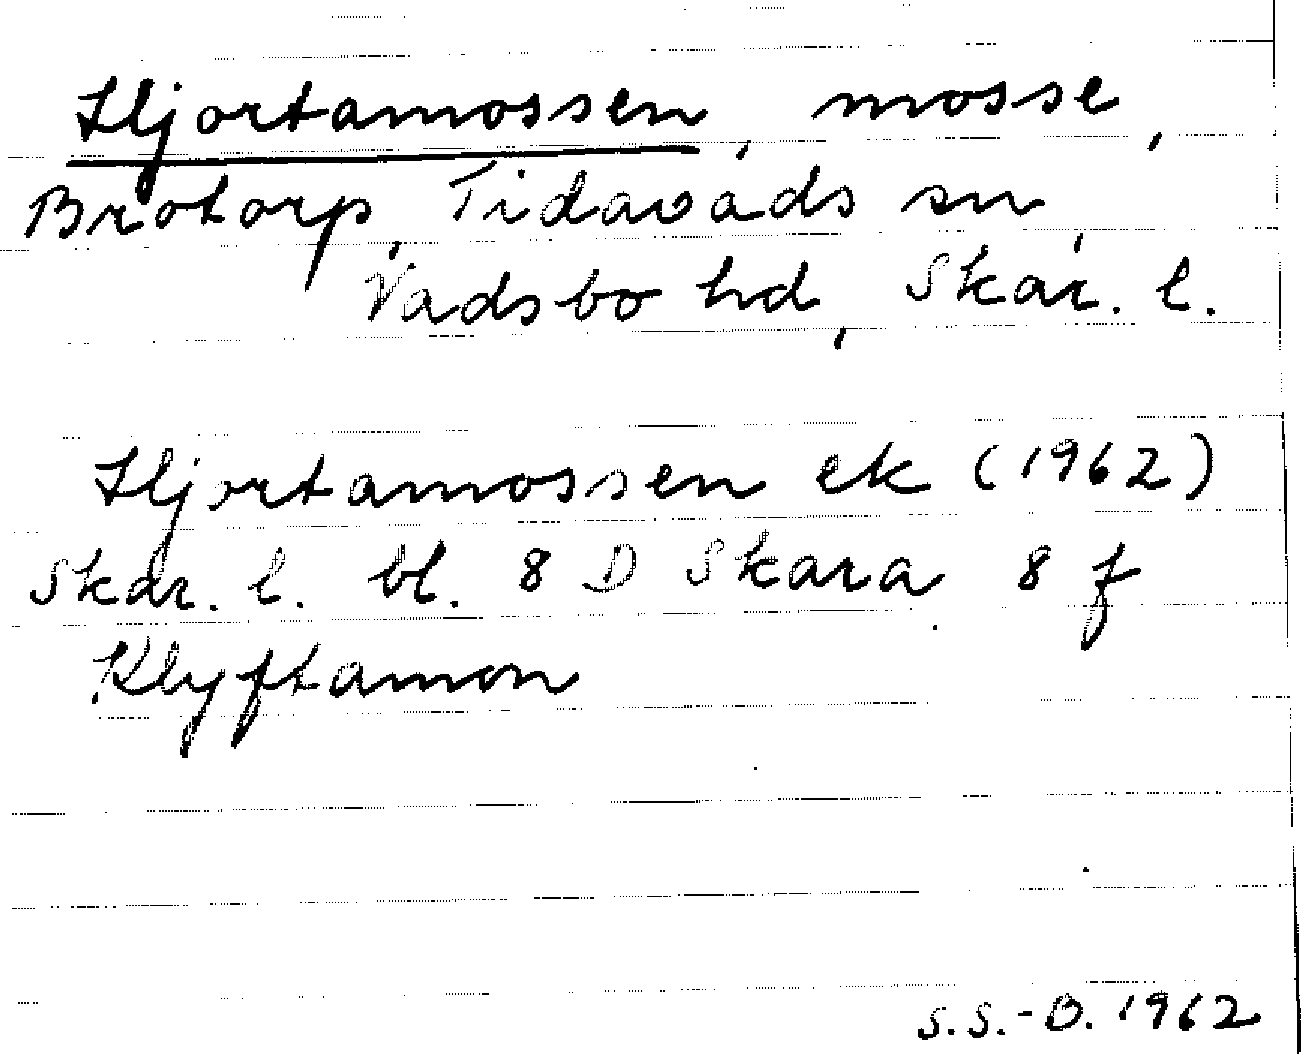 Hjortamossen, mosse,
Brotorp, Tidavads sn,
Vadsbo hd, Skar. l.
Hjortamossen ek (1962)
Skar. l. bl. 8 D Skara 8 f
Klyftamon
S.S.-O. 1962